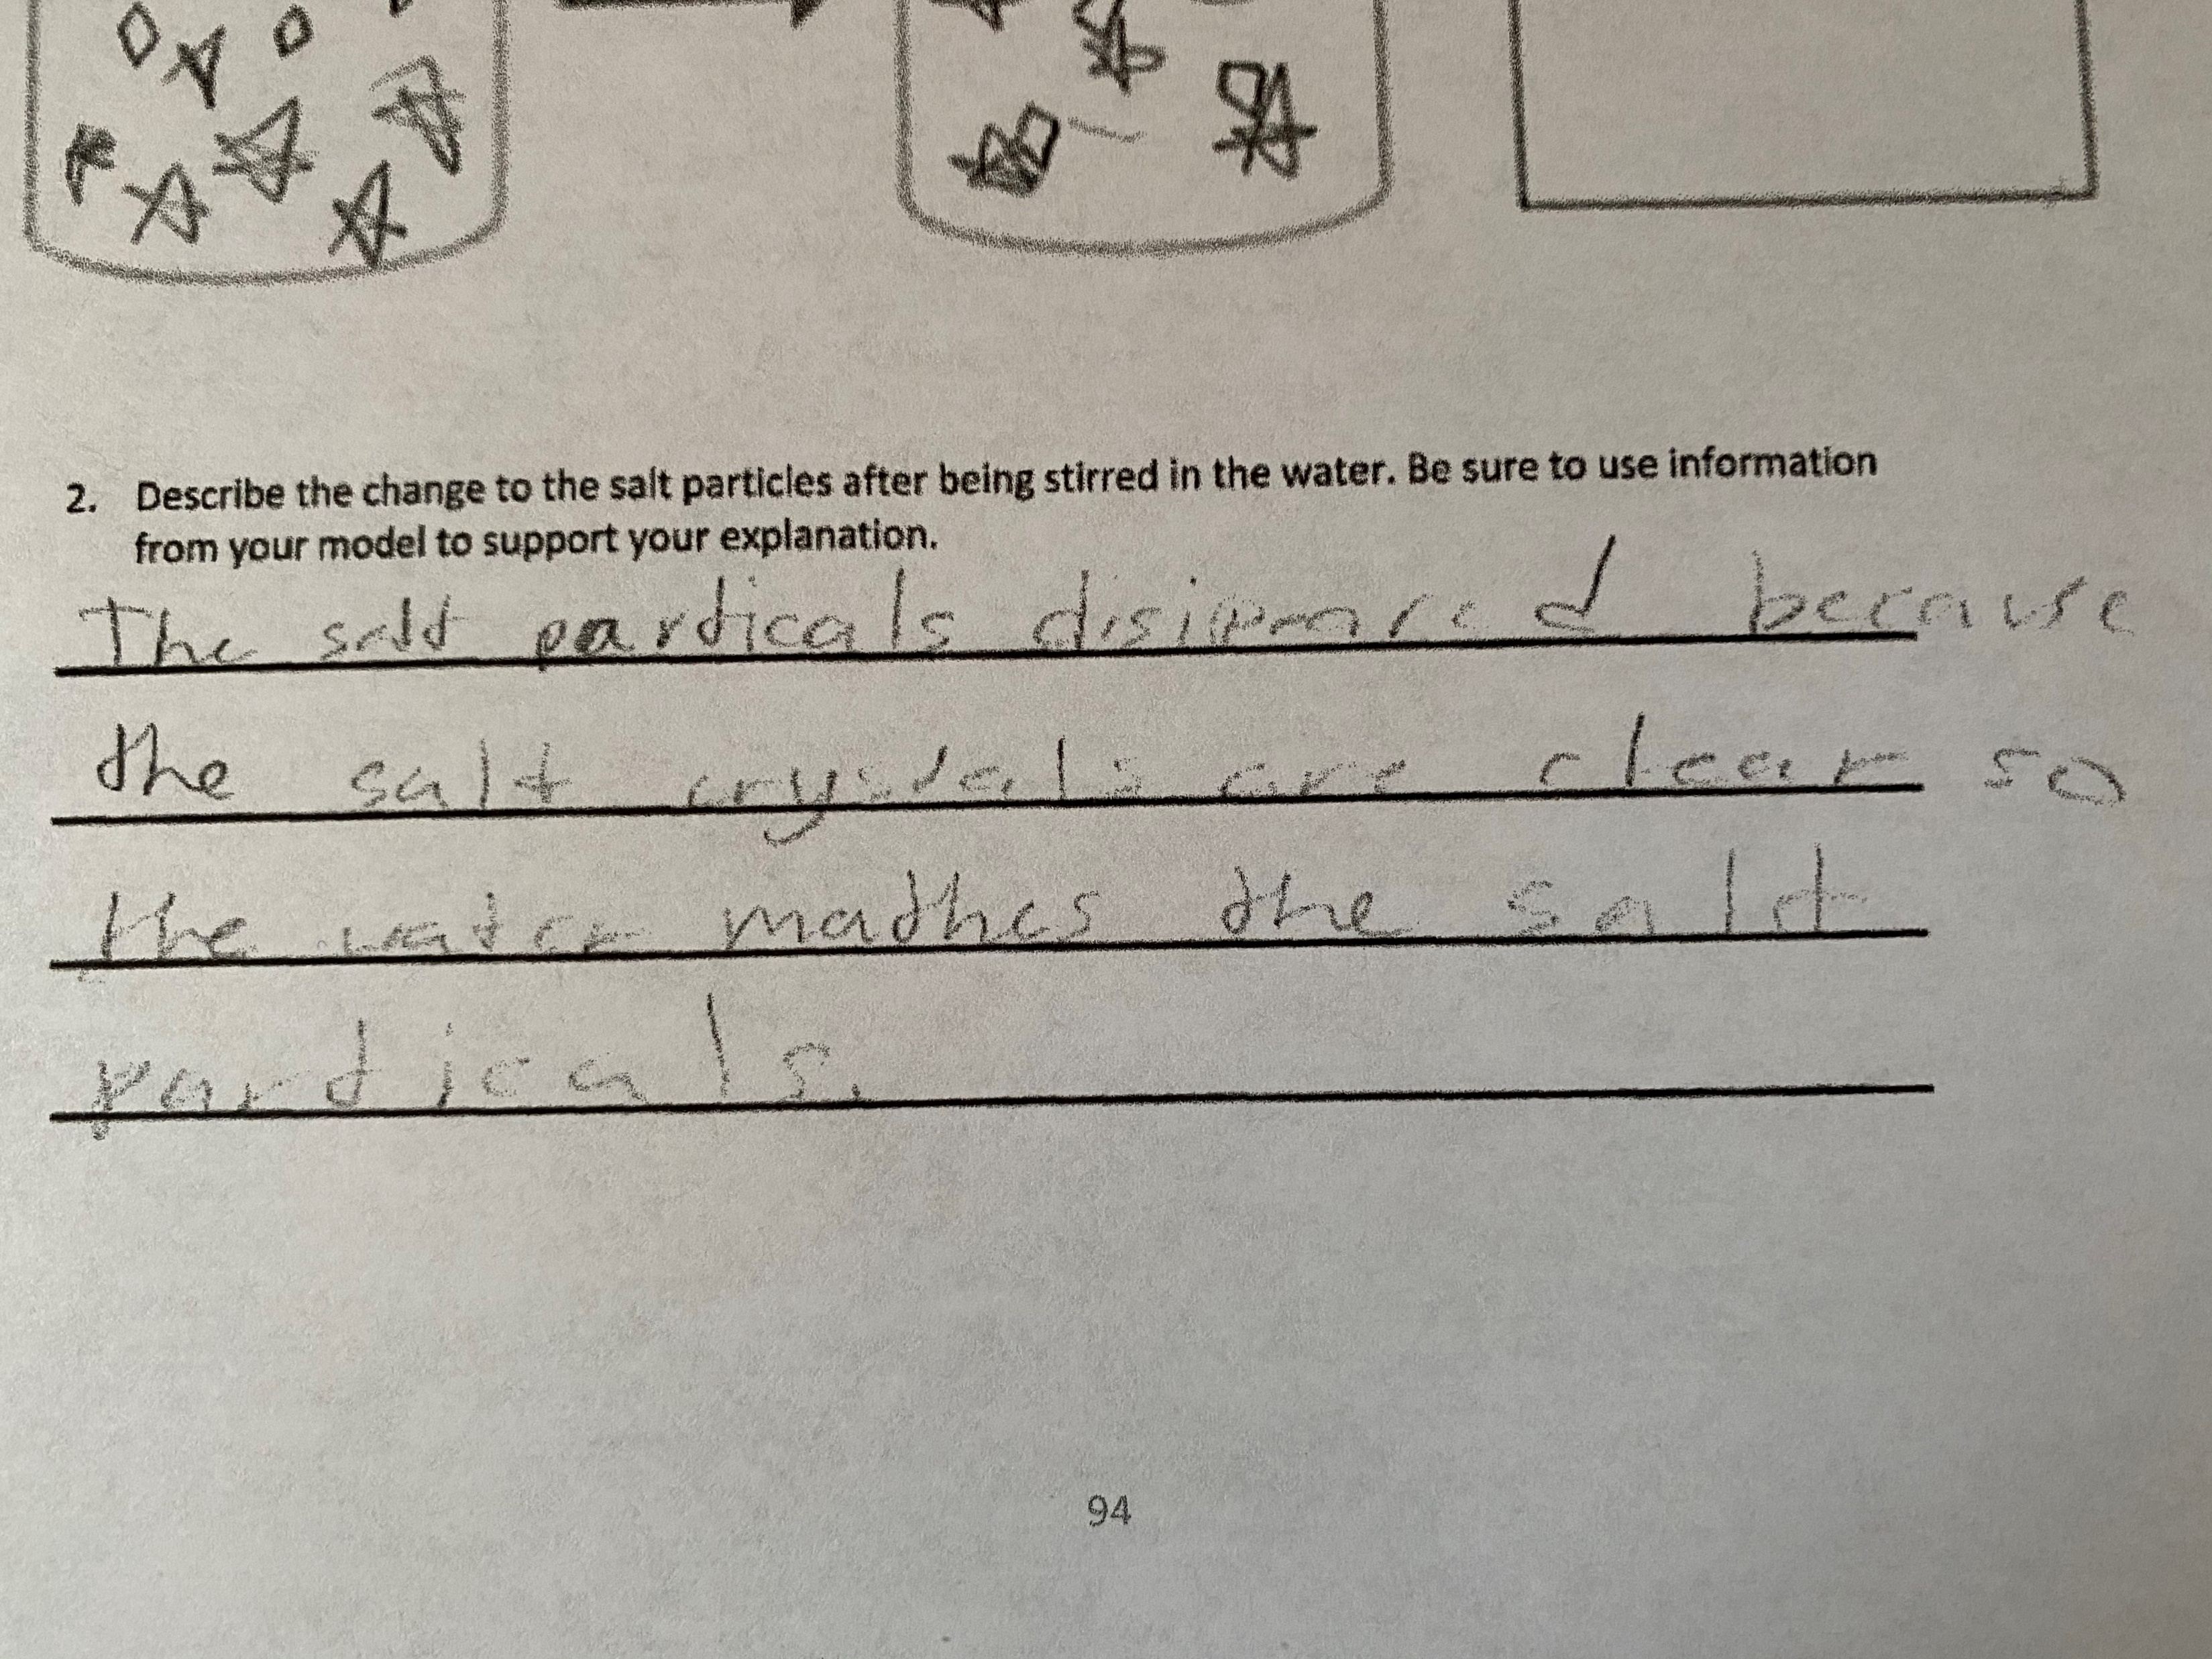 2. Describe the change to the salt particles after being stirred in the water. Be sure to use information
from your model to support your explanation.
The salt particals disipeared because
the salt crystals are clear so
the water mathes the salt
particals.
94